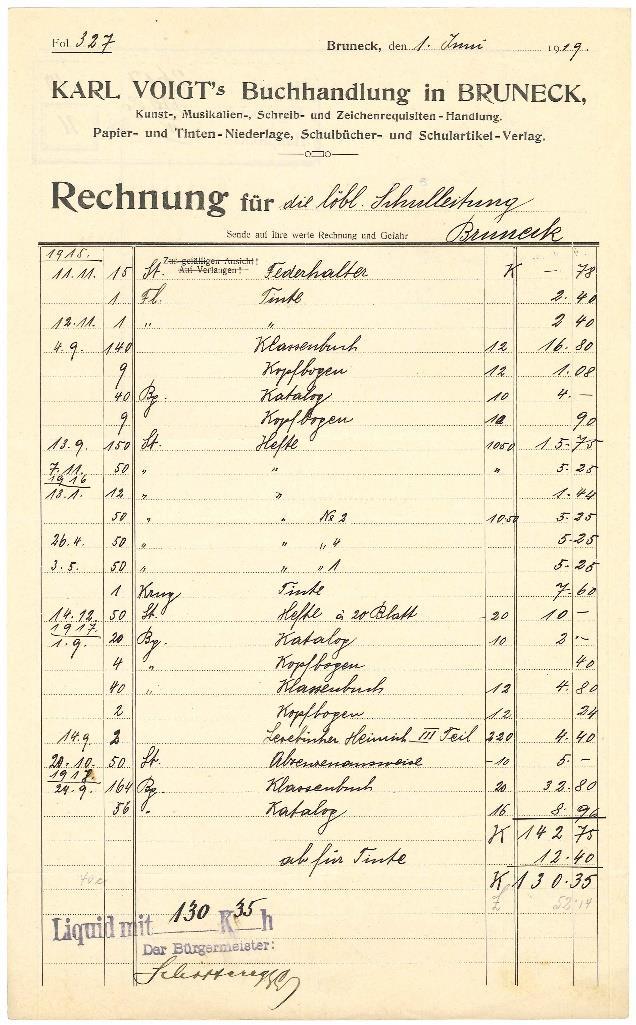 Fol. 327
Bruneck, den 1. Juni 1919.
KARL VOIGT's Buchhandlung in BRUNECK,
Kunst-, Musikalien-, Schreib- und Zeichenrequisiten-Handlung.
Papier- und Tinten-Niederlage, Schulbücher- und Schulartikel-Verlag.
Rechnung für die löbl. Schulleitung
Sende auf Ihre werte Rechnung und Gefahr Bruneck
1915.
Zur gefälligen Ansicht!
Auf Verlangen!
11.11. 15 St. Federhalter K – 78
1 Fl. Tinte 2.40
12.11. 1 „ „ 2 40
4.9. 140 Klassenbuch 12 16.80
9 Kopfbogen 12 1.08
40 Bg. Katalog 10 4.–
9 Kopfbogen 10 90
13.9. 150 St. Hefte 1050 15-75
7.11. 50 „ „ „ 5.25
1916
13.1. 12 „ „ 1.44
50 „ „ No 2 1050 5-25
26.4. 50 „ „ „ 4 5-25
3.5. 50 „ „ „ 1 5-25
1 Krug Tinte 7.60
14.12. 50 St. Hefte à 20 Blatt -20 10 –
1917.
1.9. 20 Bg. Katalog 10 2.–
4 „ Kopfbogen 40
40 „ Klassenbuch 12 4.80
2 Kopfbogen 12 24
14.9. 2 Lesebücher Heinrich III Teil 220 4.40
20.10. 50 St. Absenzausweise -10 5.–
1918.
24.9. 164 Bg. Klassenbuch 20 32.80
56 „ Katalog 16 8.96
K 142 75
ab für Tinte 12.40
K 130.35
52.14
Liquid mit 130 K 35 h
Der Bürgermeister: